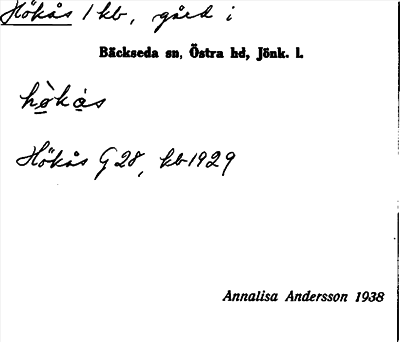 Hökås 1 kb, gård i
Bäckseda sn, Östra hd, Jönk. l.
hö̀kås
Hökås G 28, kb 1929
Annalisa Andersson 1938